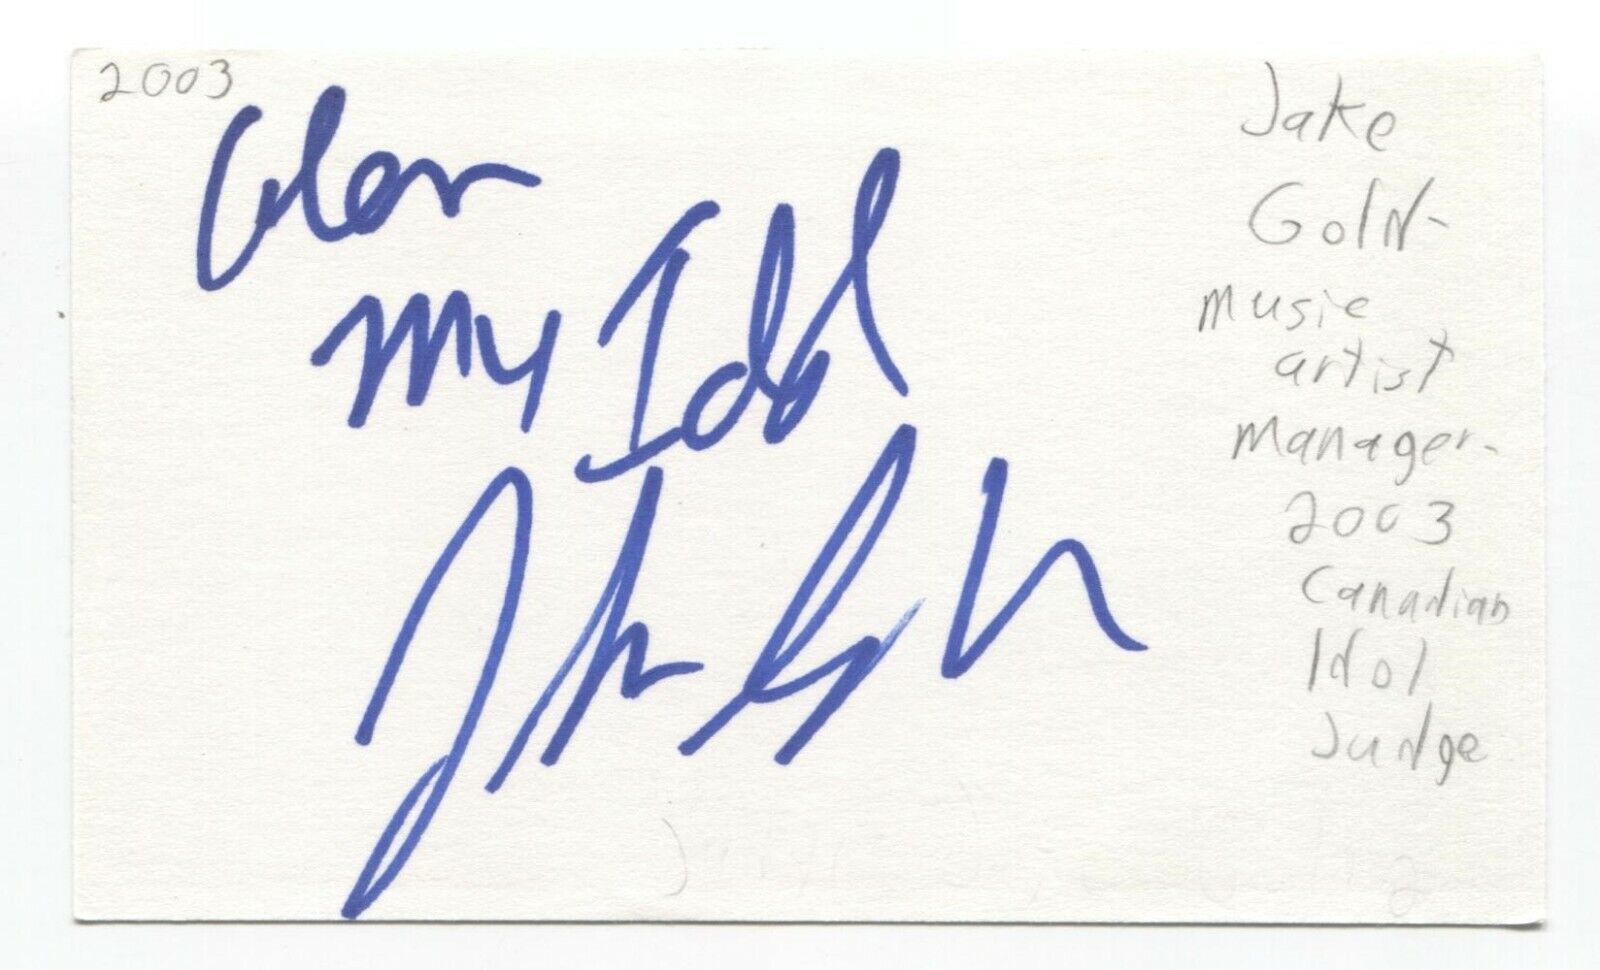 2003
Glen
My Idol
Jake Gold
Jake
Gold-
music
artist
manager-
2003
Canadian
Idol
Judge